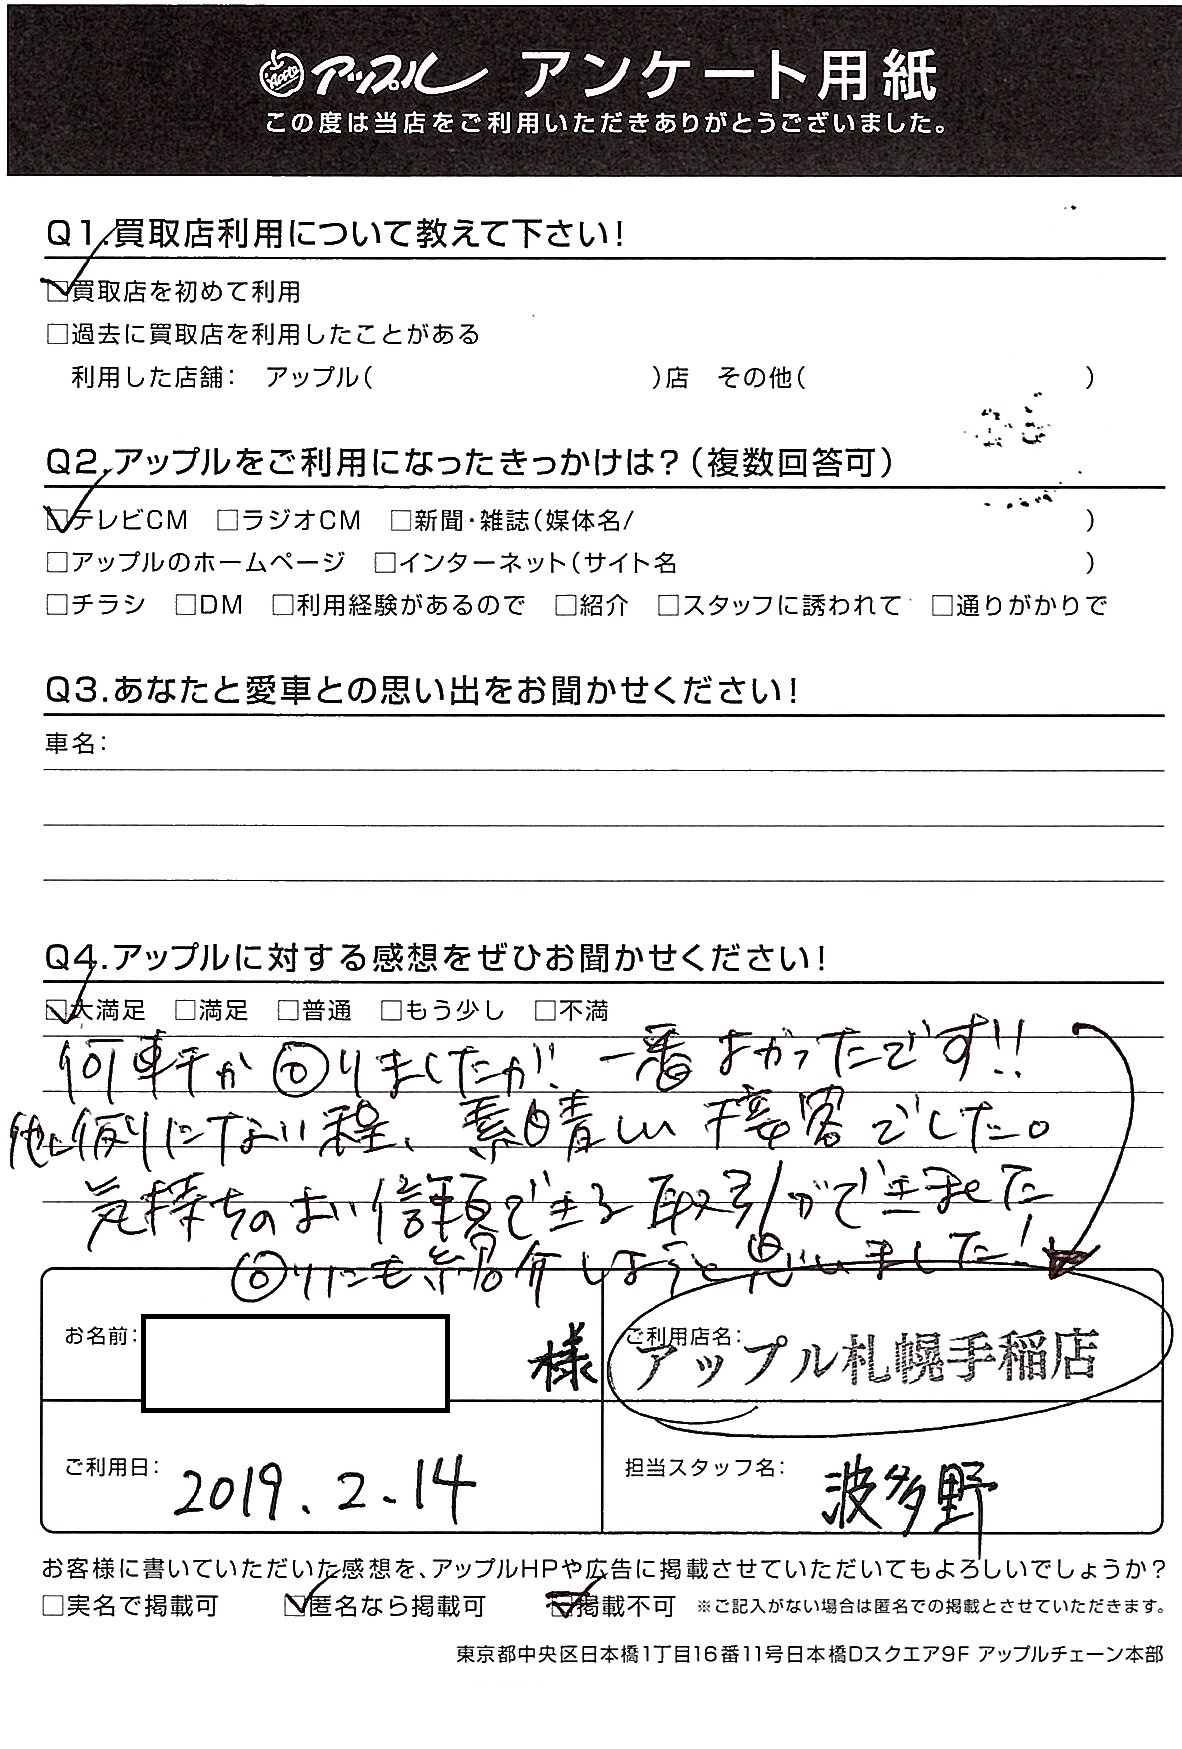 Apple アップル アンケート用紙
この度は当店をご利用いただきありがとうございました。
Q1.買取店利用について教えて下さい!
☑買取店を初めて利用
□過去に買取店を利用したことがある
利用した店舗: アップル( )店 その他( )
Q2.アップルをご利用になったきっかけは?(複数回答可)
☑テレビCM □ラジオCM □新聞・雑誌(媒体名/ )
□アップルのホームページ □インターネット(サイト名 )
□チラシ □DM □利用経験があるので □紹介 □スタッフに誘われて □通りがかりで
Q3.あなたと愛車との思い出をお聞かせください!
車名:
Q4.アップルに対する感想をぜひお聞かせください!
☑大満足 □満足 □普通 □もう少し □不満
何軒か回りましたが、一番よかったです!!
他に例にない程、素晴しい接客でした。
気持ちのよい信頼できる取引ができました
回りにも紹介しようと思いました!
お名前: 様 ご利用店名: アップル札幌手稲店
ご利用日: 2019.2.14 担当スタッフ名: 波多野
お客様に書いていただいた感想を、アップルHPや広告に掲載させていただいてもよろしいでしょうか?
□実名で掲載可 ☑匿名なら掲載可 ☑掲載不可 ※ご記入がない場合は匿名での掲載とさせていただきます。
東京都中央区日本橋1丁目16番11号日本橋Dスクエア9F アップルチェーン本部